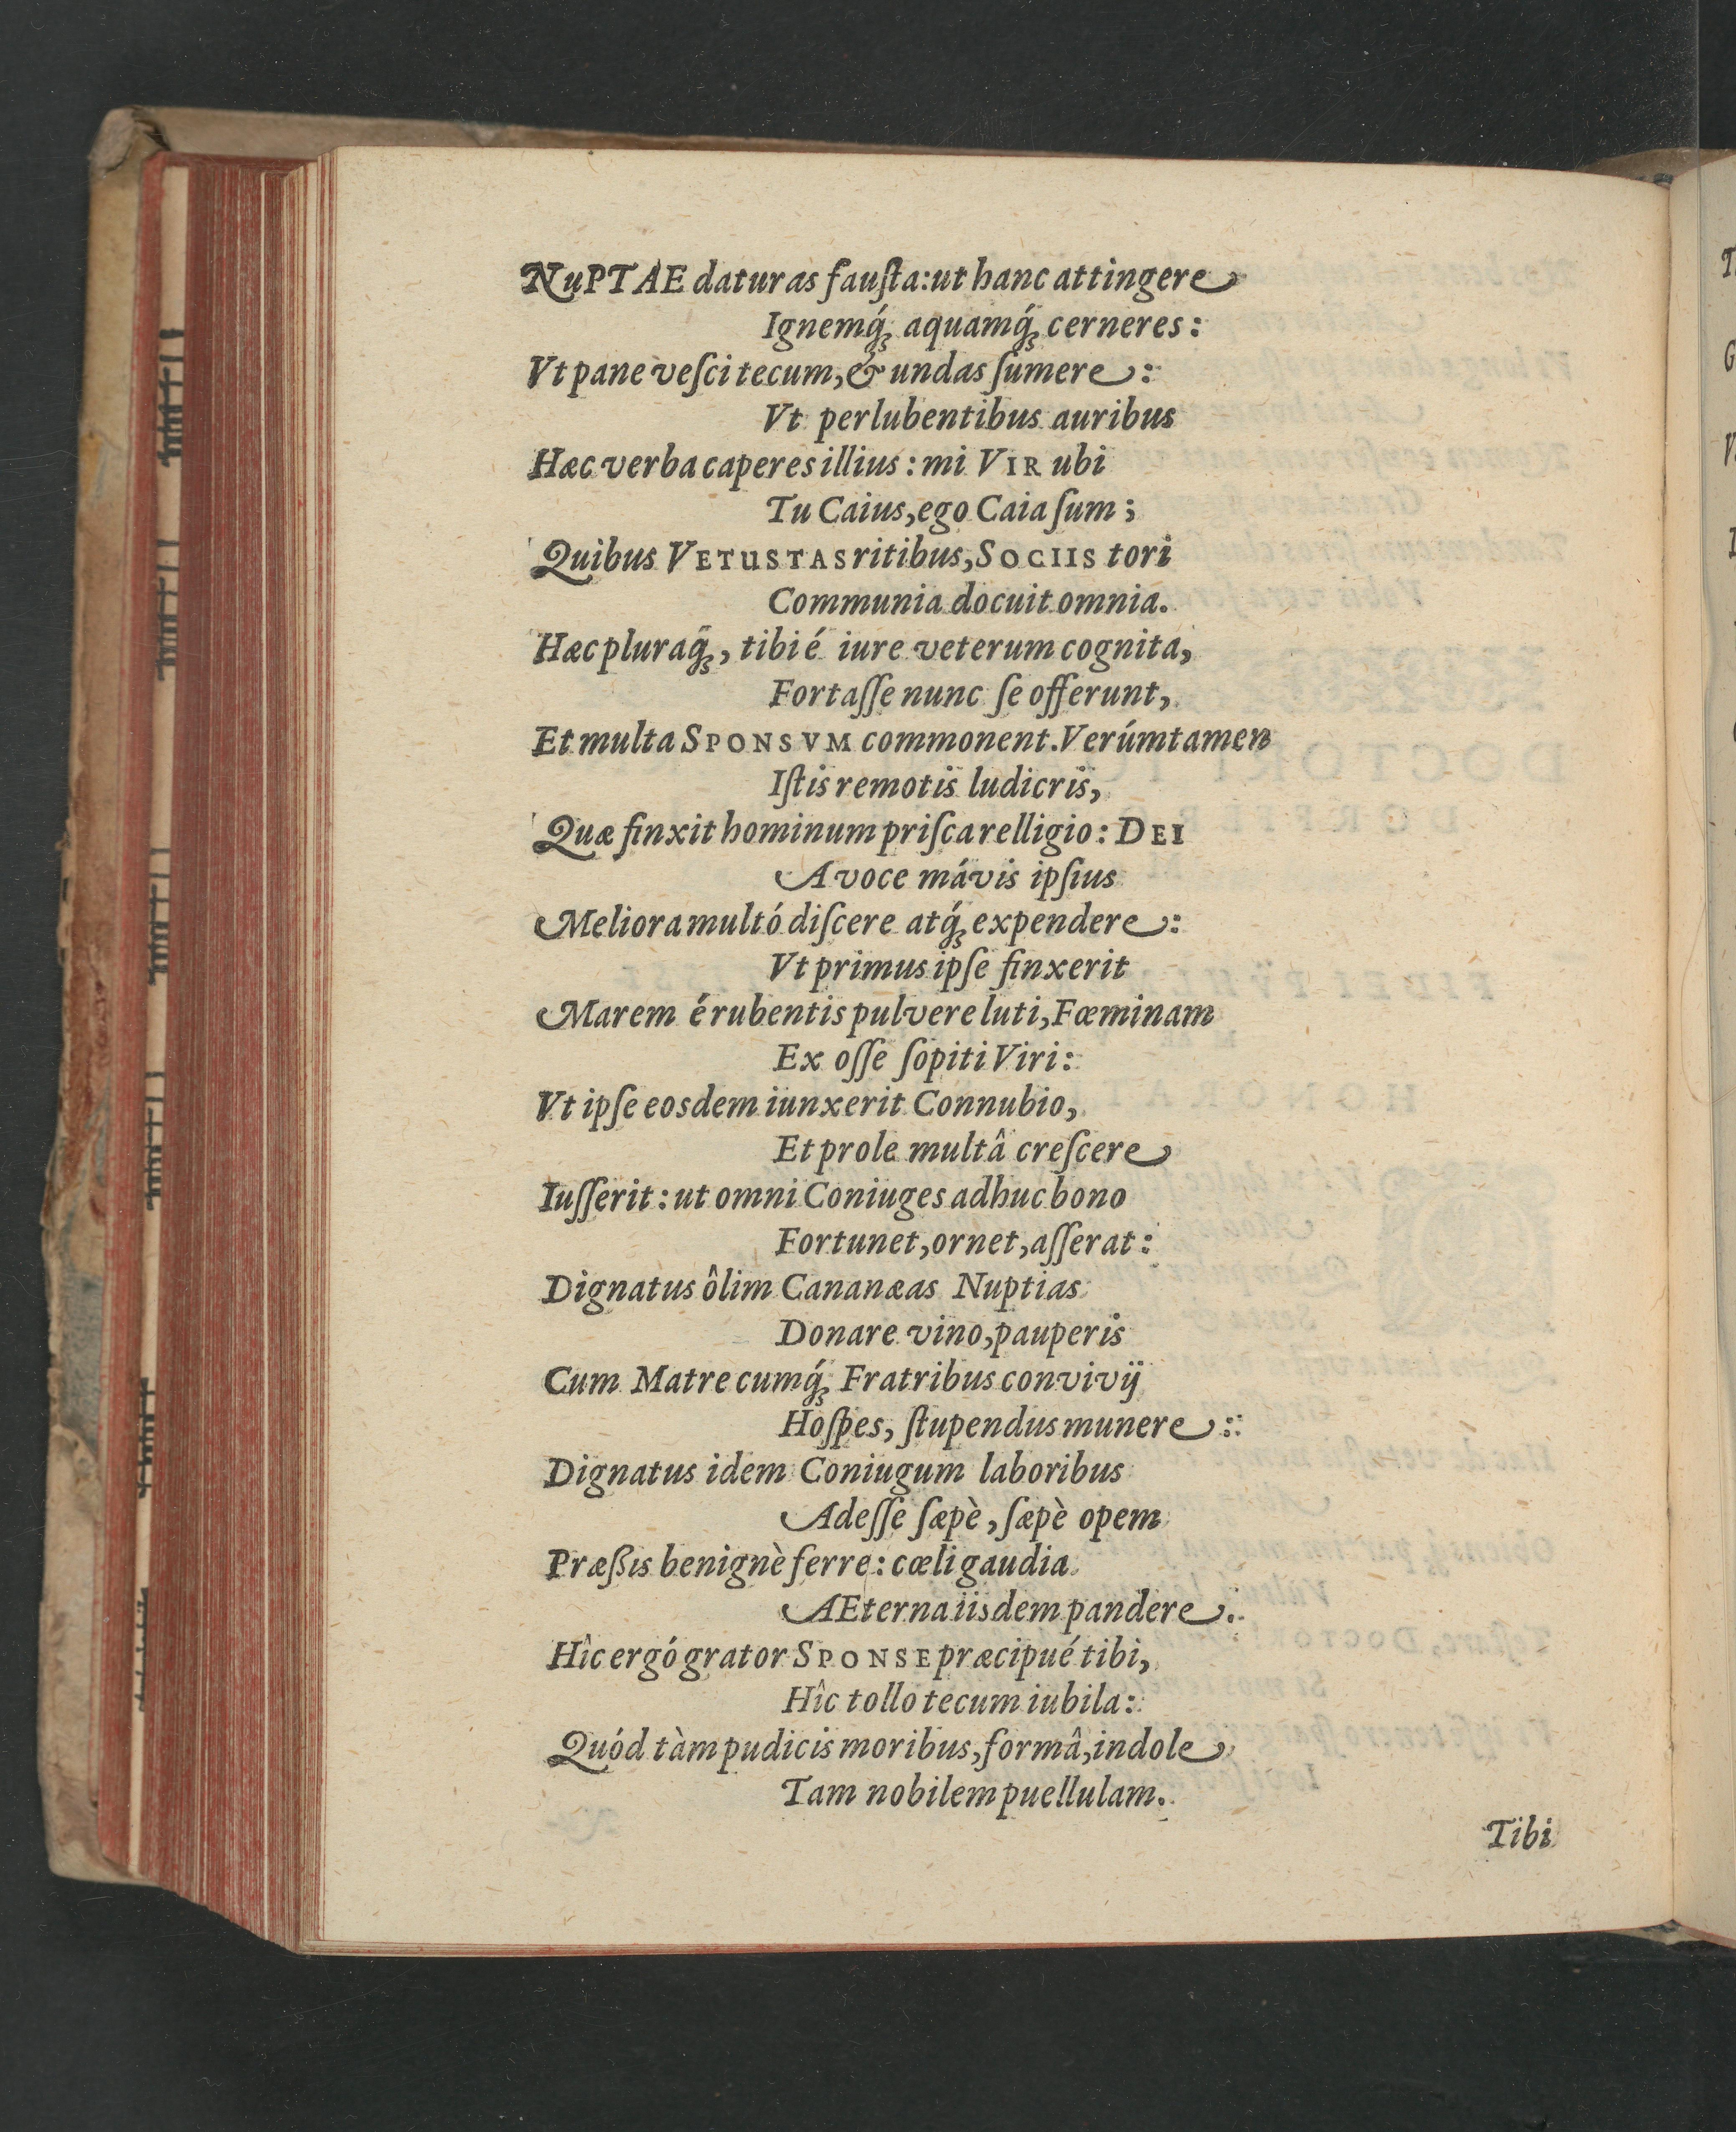 NuPTAE daturas fauſta: ut hanc attingere
Ignemq́; aquamq́; cerneres:
Vt pane veſci tecum, & undas ſumere:
Vt perlubentibus auribus
Hæc verba caperes illius: mi VIR ubi
Tu Caius, ego Caia ſum;
Quibus VETUSTAS ritibus, SOCIIS tori
Communia docuit omnia.
Hæc pluraq́;, tibi é iure veterum cognita,
Fortaſſe nunc ſe offerunt,
Et multa SPONSVM commonent. Verúmtamen
Iſtis remotis ludicris,
Quæ finxit hominum priſca relligio: DEI
A voce mávis ipſius
Meliora multó diſcere atq́; expendere:
Vt primus ipſe finxerit
Marem é rubentis pulvere luti, Fœminam
Ex oſſe ſopiti Viri:
Vt ipſe eosdem iunxerit Connubio,
Et prole multâ creſcere
Iuſſerit: ut omni Coniuges adhuc bono
Fortunet, ornet, aſſerat:
Dignatus ôlim Cananæas Nuptias
Donare vino, pauperis
Cum Matre cumq́; Fratribus convivij
Hoſpes, ſtupendus munere:
Dignatus idem Coniugum laboribus
Adeſſe ſæpè, ſæpè opem
Præßis benignè ferre: cœli gaudia
AEterna iisdem pandere.
Hîc ergó grator SPONSE præcipué tibi,
Hîc tollo tecum iubila:
Quód tàm pudicis moribus, formâ, indole
Tam nobilem puellulam.
Tibi